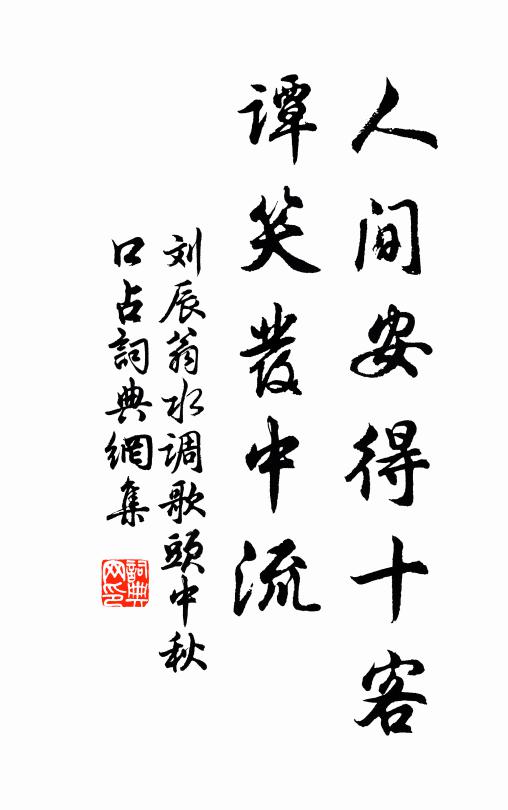 人间安得十客
谭笑發中流
刘辰翁水调歌頭中秋
口占詞典網集
詞典
网印